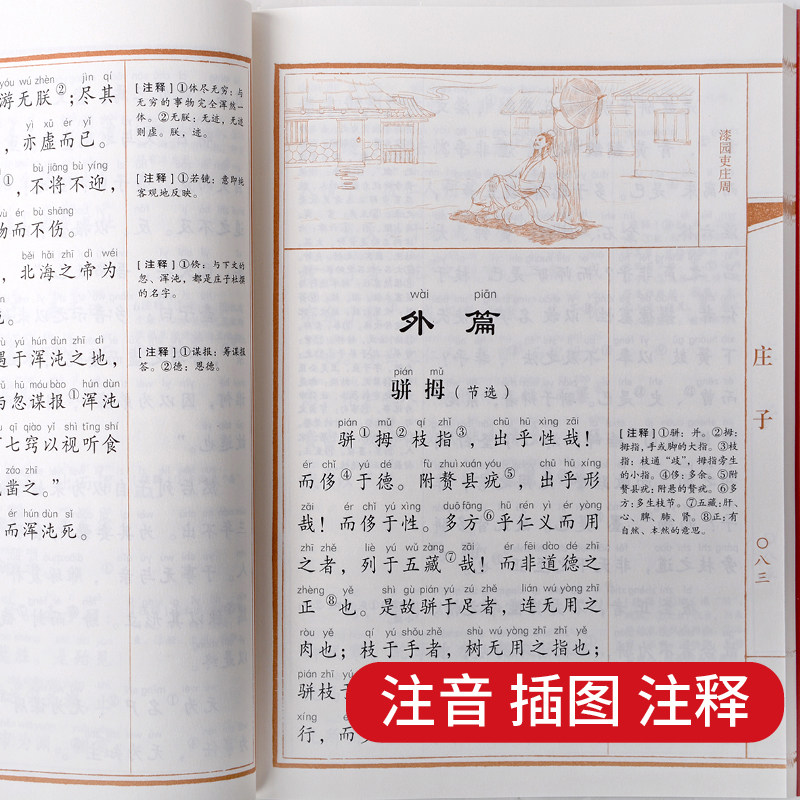 yóu wú zhèn jìn qí
游无朕②；尽其
yì xū ér yǐ
，亦虚而已。
bù jiāng bù yíng
①，不将不迎，
ér bù shāng
物而不伤。
běi hǎi zhī dì wéi
，北海之帝为
yú hún dùn zhī dì
遇于浑沌之地，
hū móu bào hún dùn
与忽谋报①浑沌
qī qiào yǐ shì tīng shí
七窍以视听食
záo zhī
凿之。”
ér hún dùn sǐ
而浑沌死。
[注释]①体尽无穷：与
无穷的事物完全浑然一
体。②无朕：无迹，无迹
则虚。朕，迹。
[注释]①若镜：意即纯
客观地反映。
[注释]①倏：与下文的
忽、浑沌，都是庄子杜撰
的名字。
[注释]①谋报：筹谋报
答。②德：恩德。
漆园吏庄周
wài piān
外篇
pián mǔ
骈拇（节选）
pián mǔ qí zhǐ chū hū xìng zāi
骈①拇②枝指③，出乎性哉！
ér chǐ yú dé fù zhuì xuán yóu chū hū xíng
而侈④于德。附赘县疣⑤，出乎形
zāi ér chǐ yú xìng duō fāng hū rén yì ér yòng
哉！而侈于性。多方⑥乎仁义而用
zhī zhě liè yú wǔ zàng zāi ér fēi dào dé zhī
之者，列于五藏⑦哉！而非道德之
zhèng yě shì gù pián yú zú zhě lián wú yòng zhī
正⑧也。是故骈于足者，连无用之
ròu yě qí yú shǒu zhě shù wú yòng zhī zhǐ yě
肉也；枝于手者，树无用之指也；
pián zhī
骈枝于
xíng
行，而
[注释]①骈：并。②拇：
拇指，手或脚的大指。③枝
指：枝通“歧”，拇指旁生
的小指。④侈：多余。⑤附
赘县疣：附悬的赘疣。⑥多
方：多生枝节。⑦五藏：肝、
心、脾、肺、肾。⑧正：有
自然、本然的意思。
庄子
〇八三
注音 插图 注释